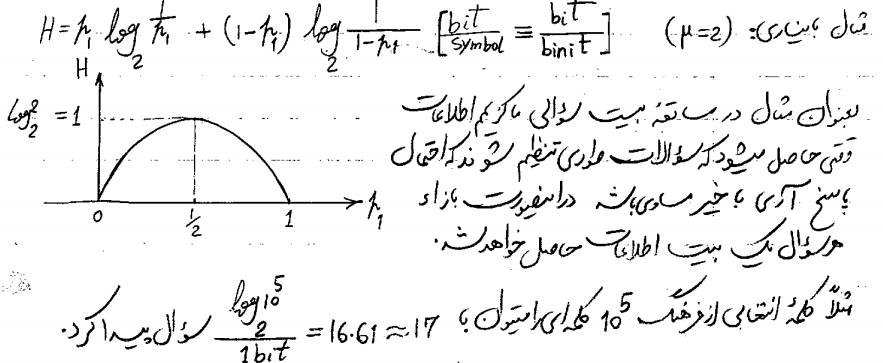 مثال باینری: (μ=2) H = p₁ log₂ 1/p₁ + (1-p₁) log₂ 1/(1-p₁) [bit/symbol ≡ bit/binit]
H
log₂2 = 1
0 1/2 1 p₁
بعنوان مثال در مسابقه بیست سؤالی ماکزیمم اطلاعات
وقتی حاصل میشود که سؤالات طوری تنظیم شوند که احتمال
پاسخ آری با خیر مساوی باشد دراینصورت بازاء
هر سؤال یک بیت اطلاعات حاصل خواهد شد.
مثلاً کلمهٔ انتخابی از فرهنگ 10⁵ کلمه ای را میتوان با log₂10⁵/1bit = 16.61 ≈ 17 سؤال پیدا کرد.